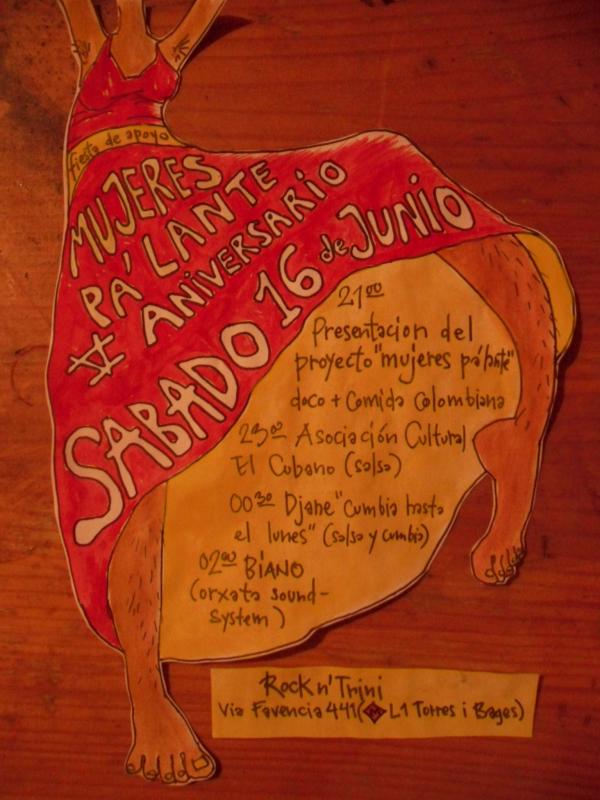 Fiesta de apoyo
MUJERES
PÁ LANTE
V ANIVERSARIO
SABADO 16 de JUNIO
21⁰⁰
Presentacion del
proyecto "mujeres pá'lante"
doco + Comida Colombiana
23⁰⁰ Asociación Cultural
El Cubano (salsa)
00³⁰ Djane "Cumbia hasta
el lunes" (salsa y cumbia)
02⁰⁰ BIANO
(orxata sound-
system)
Rock n' Trini
Via Favencia 441 (M L1 Torres i Bages)